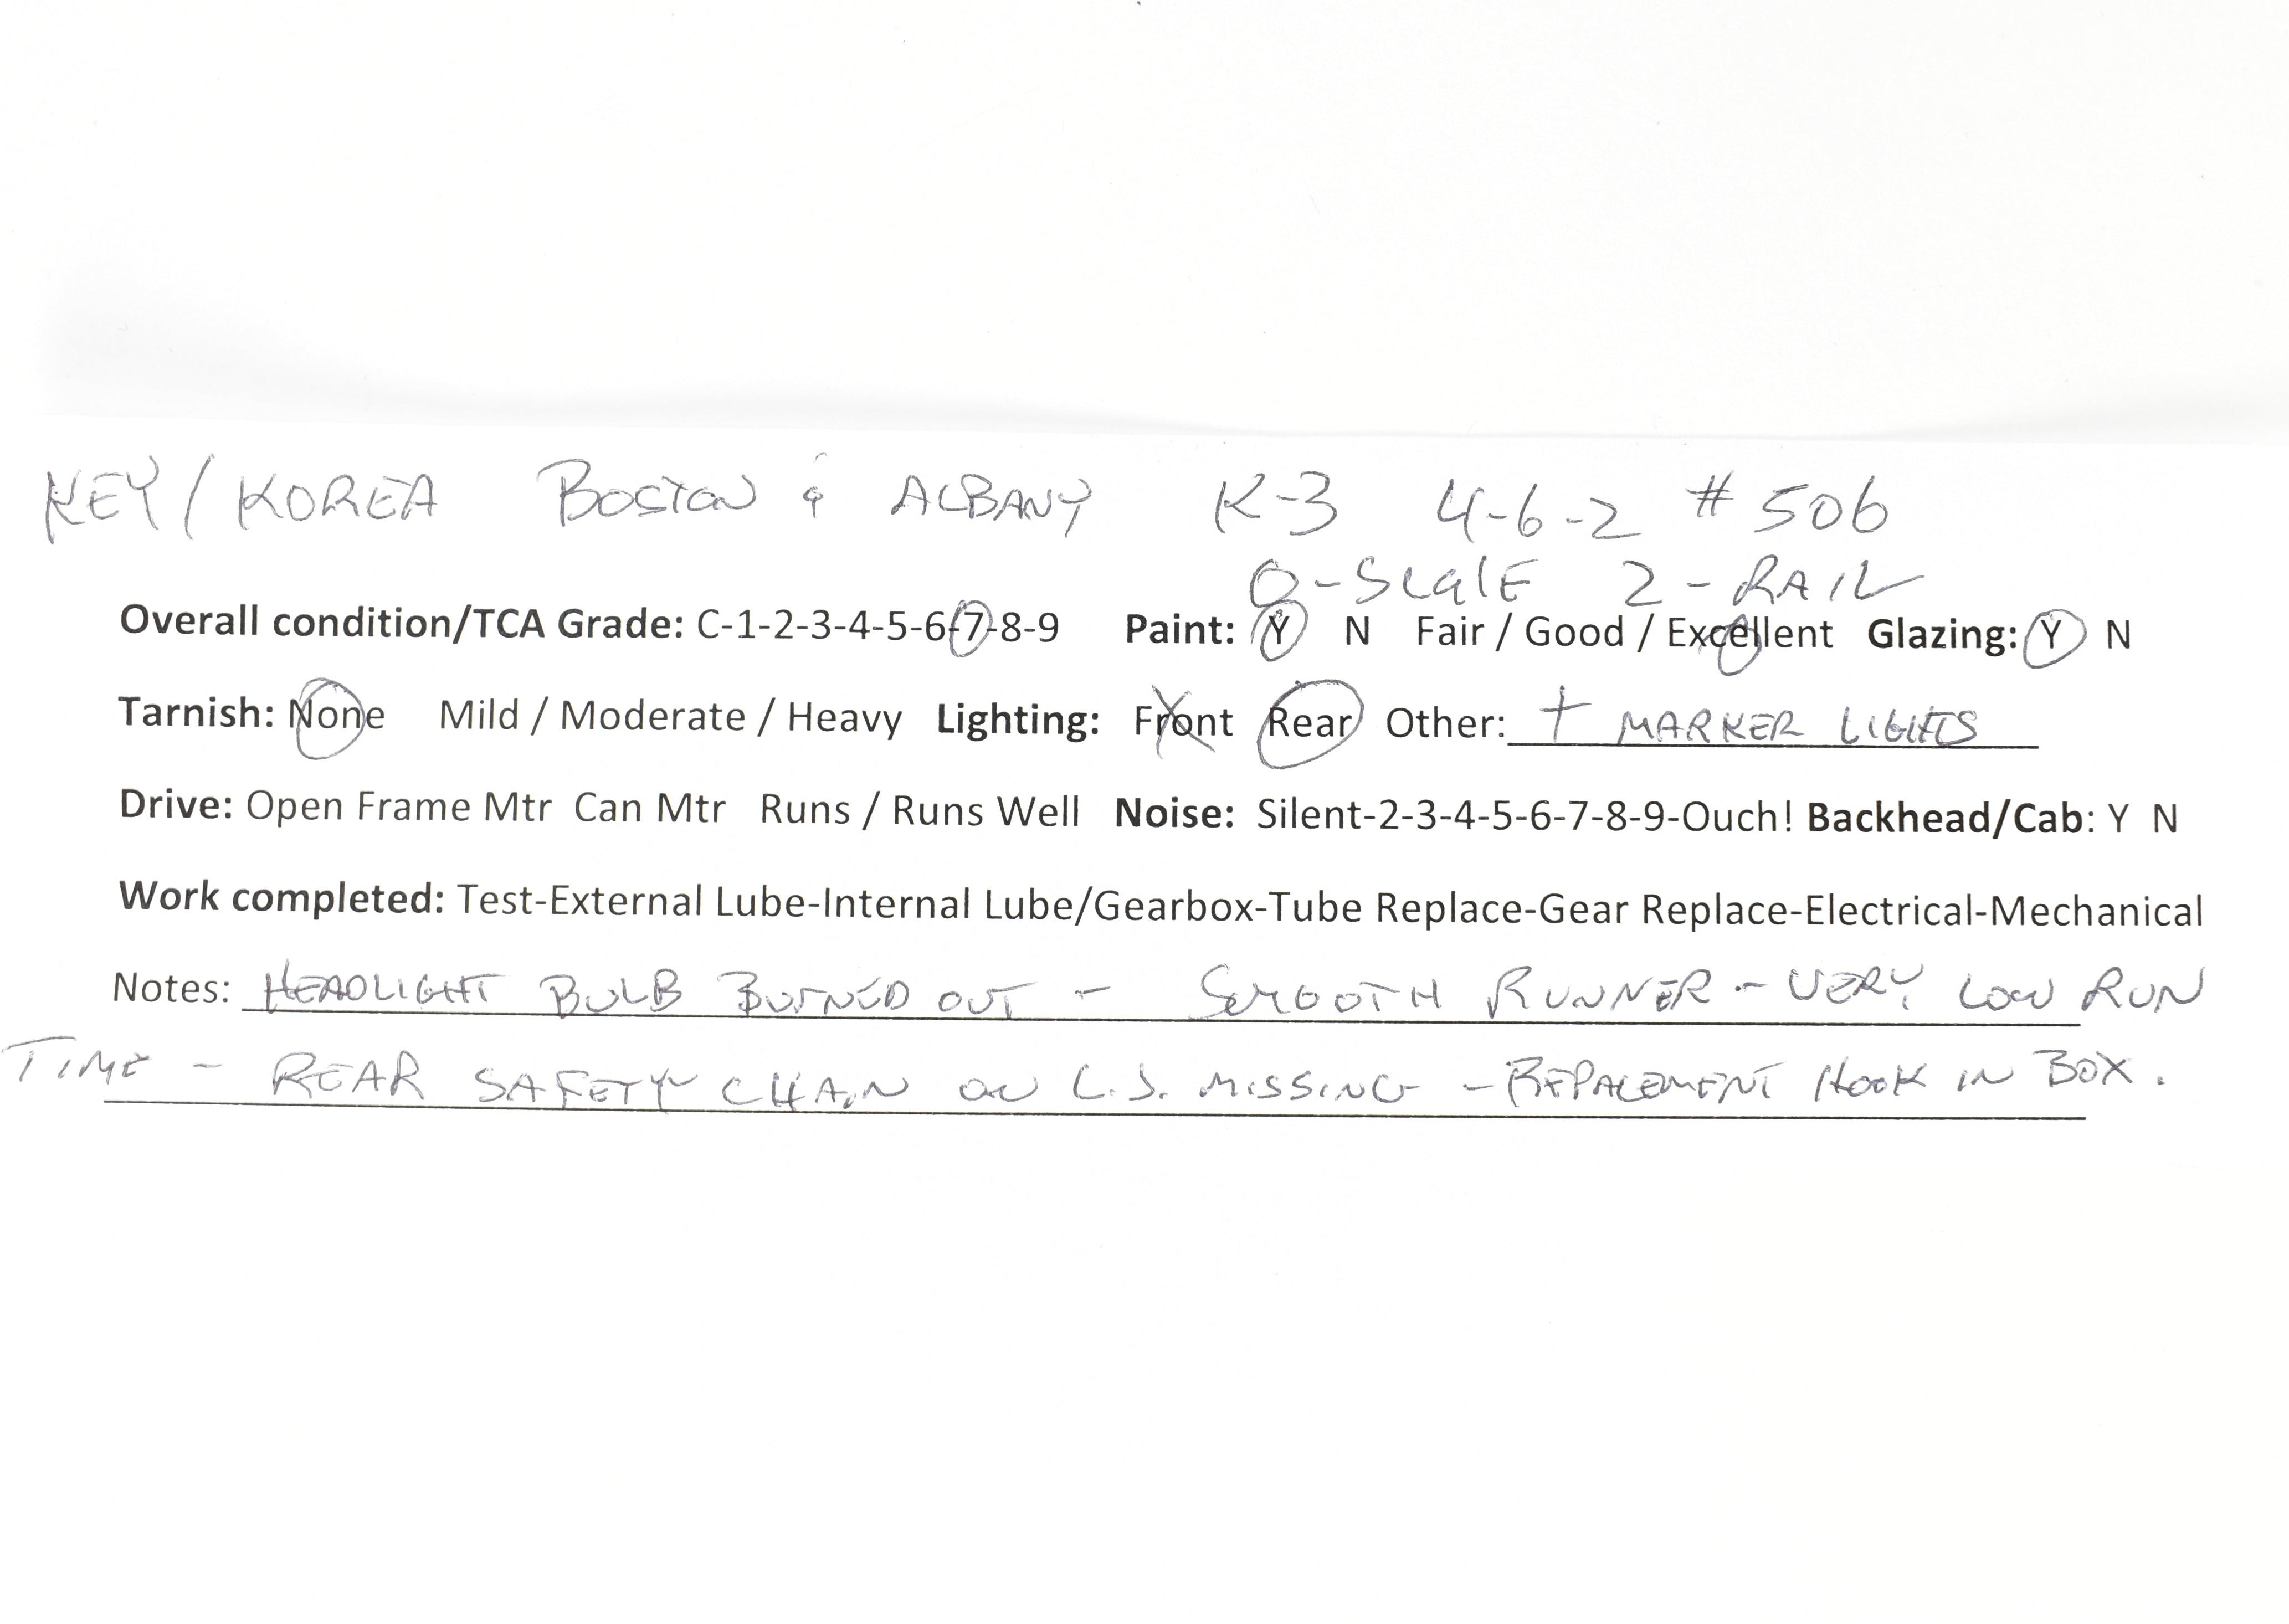 KEY/KOREA BOSTON & ALBANY K-3 4-6-2 # 506
O-SCALE 2-RAIL
Overall condition/TCA Grade: C-1-2-3-4-5-6-7-8-9 Paint: Y N Fair / Good / Excellent Glazing: Y N
Tarnish: None Mild / Moderate / Heavy Lighting: Front Rear Other: + MARKER LIGHTS
Drive: Open Frame Mtr Can Mtr Runs / Runs Well Noise: Silent-2-3-4-5-6-7-8-9-Ouch! Backhead/Cab: Y N
Work completed: Test-External Lube-Internal Lube/Gearbox-Tube Replace-Gear Replace-Electrical-Mechanical
Notes: HEADLIGHT BULB BURNED OUT - SMOOTH RUNNER - VERY LOW RUN
TIME - REAR SAFETY CHAIN ON L.S. MISSING - REPACEMENT HOOK IN BOX.